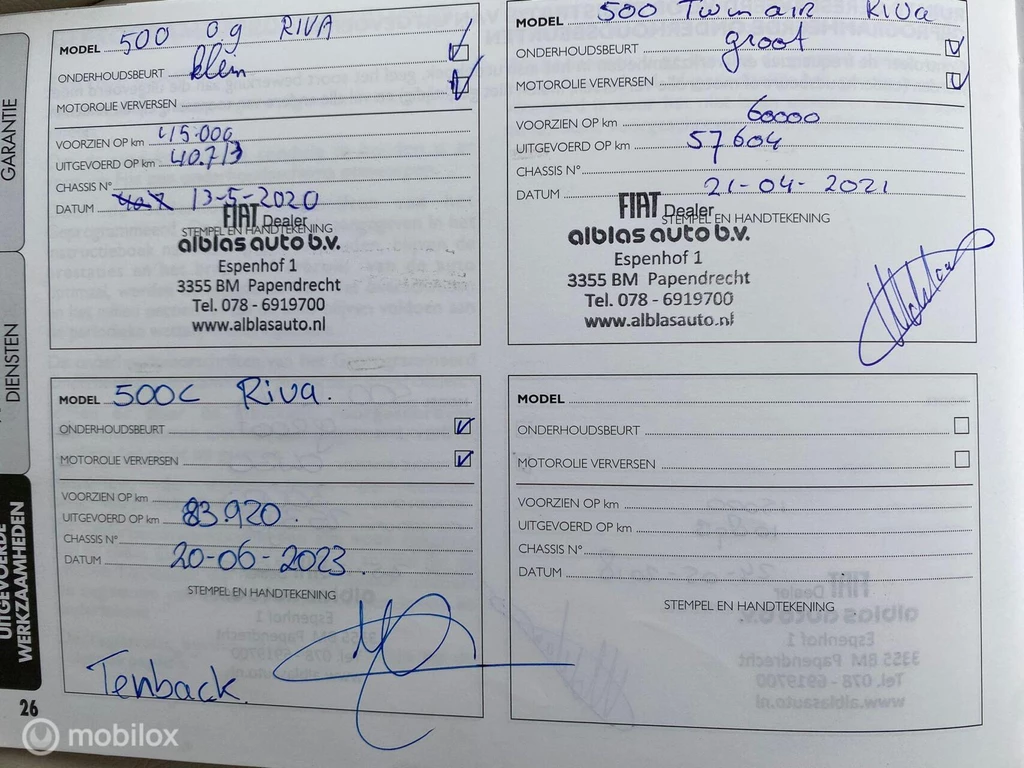 GARANTIE
DIENSTEN
UITGEVOERDE
WERKZAAMHEDEN
26
MODEL 500 0.9 RIVA
ONDERHOUDSBEURT klein
MOTOROLIE VERVERSEN
VOORZIEN OP km 45.000
UITGEVOERD OP km 40.713
CHASSIS N°
DATUM 13-5-2020
FIAT Dealer
STEMPEL EN HANDTEKENING
alblas auto b.v.
Espenhof 1
3355 BM Papendrecht
Tel. 078 - 6919700
www.alblasauto.nl
MODEL 500 Twinair RIVA
ONDERHOUDSBEURT groot
MOTOROLIE VERVERSEN
VOORZIEN OP km 60000
UITGEVOERD OP km 57604
CHASSIS N°
DATUM 21-04-2021
FIAT Dealer
STEMPEL EN HANDTEKENING
alblas auto b.v.
Espenhof 1
3355 BM Papendrecht
Tel. 078 - 6919700
www.alblasauto.nl
MODEL 500C Riva.
ONDERHOUDSBEURT
MOTOROLIE VERVERSEN
VOORZIEN OP km
UITGEVOERD OP km 83.920.
CHASSIS N°
DATUM 20-06-2023.
STEMPEL EN HANDTEKENING
Tenback.
MODEL
ONDERHOUDSBEURT
MOTOROLIE VERVERSEN
VOORZIEN OP km
UITGEVOERD OP km
CHASSIS N°
DATUM
STEMPEL EN HANDTEKENING
mobilox